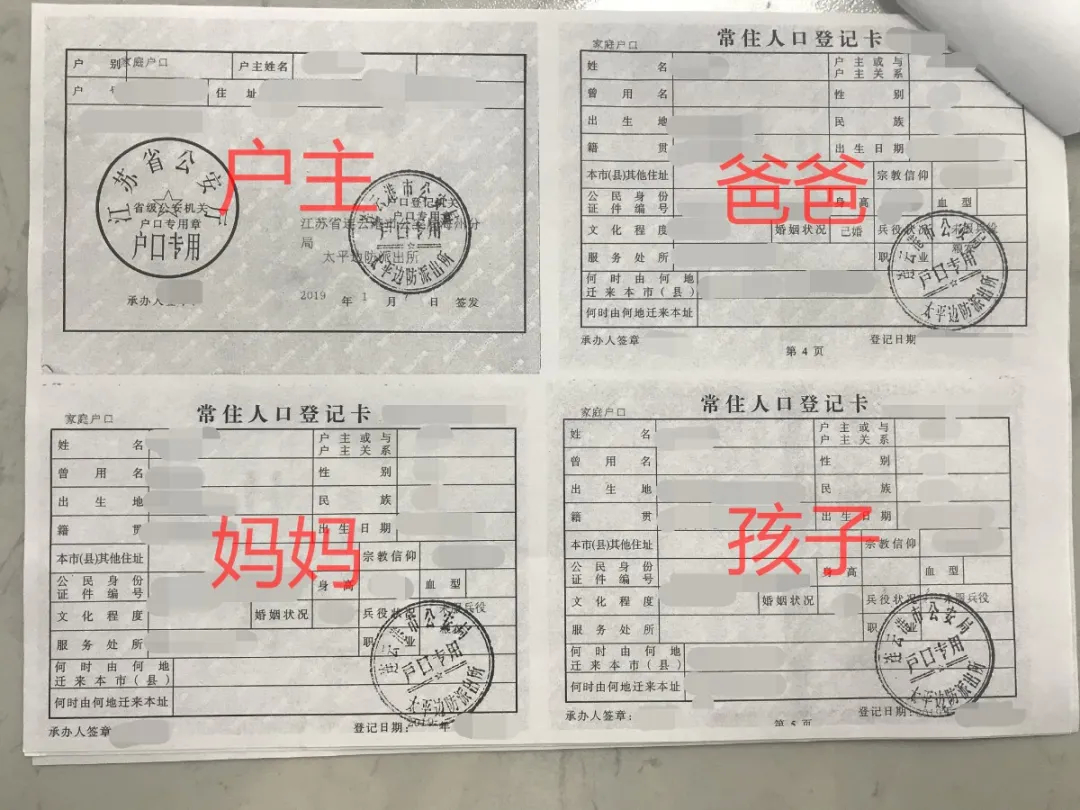 户 别 家庭户口 户主姓名
户 住 址
江苏省公安厅
省级公安机关
户口专用章
户口专用
户主
户口登记机关
户口专用章
江苏省连云港市公安局海州分
局
太平边防派出所
连云港市公安局
户口专用
太平边防派出所
承办人签章
2019 年 1 月 日 签发
家庭户口
常住人口登记卡
姓 名 户主或与户主关系
曾用名 性 别
出生地 民 族
籍 贯 出生日期
本市(县)其他住址 宗教信仰
公民身份证件编号 身 高 血 型
文化程度 婚姻状况 已婚 兵役状况 未服兵役
服务处所 职 业
何时由何地迁来本市(县)
何时由何地迁来本址
承办人签章 登记日期
第 4 页
爸爸
户口专用
太平边防派出所
家庭户口
常住人口登记卡
姓 名 户主或与户主关系
曾用名 性 别
出生地 民 族
籍 贯 出生日期
本市(县)其他住址 宗教信仰
公民身份证件编号 身 高 血 型
文化程度 婚姻状况 兵役状况 未服兵役
服务处所 职 业
何时由何地迁来本市(县)
何时由何地迁来本址
承办人签章 登记日期: 2019年 年
妈妈
连云港市公安局
户口专用
太平边防派出所
家庭户口
常住人口登记卡
姓 名 户主或与户主关系
曾用名 性 别
出生地 民 族
籍 贯 出生日期
本市(县)其他住址 宗教信仰
公民身份证件编号 身 高 血 型
文化程度 婚姻状况 兵役状况 未服兵役
服务处所 职 业
何时由何地迁来本市(县)
何时由何地迁来本址
承办人签章: 登记日期:
第 5 页
孩子
连云港市公安局
户口专用
太平边防派出所